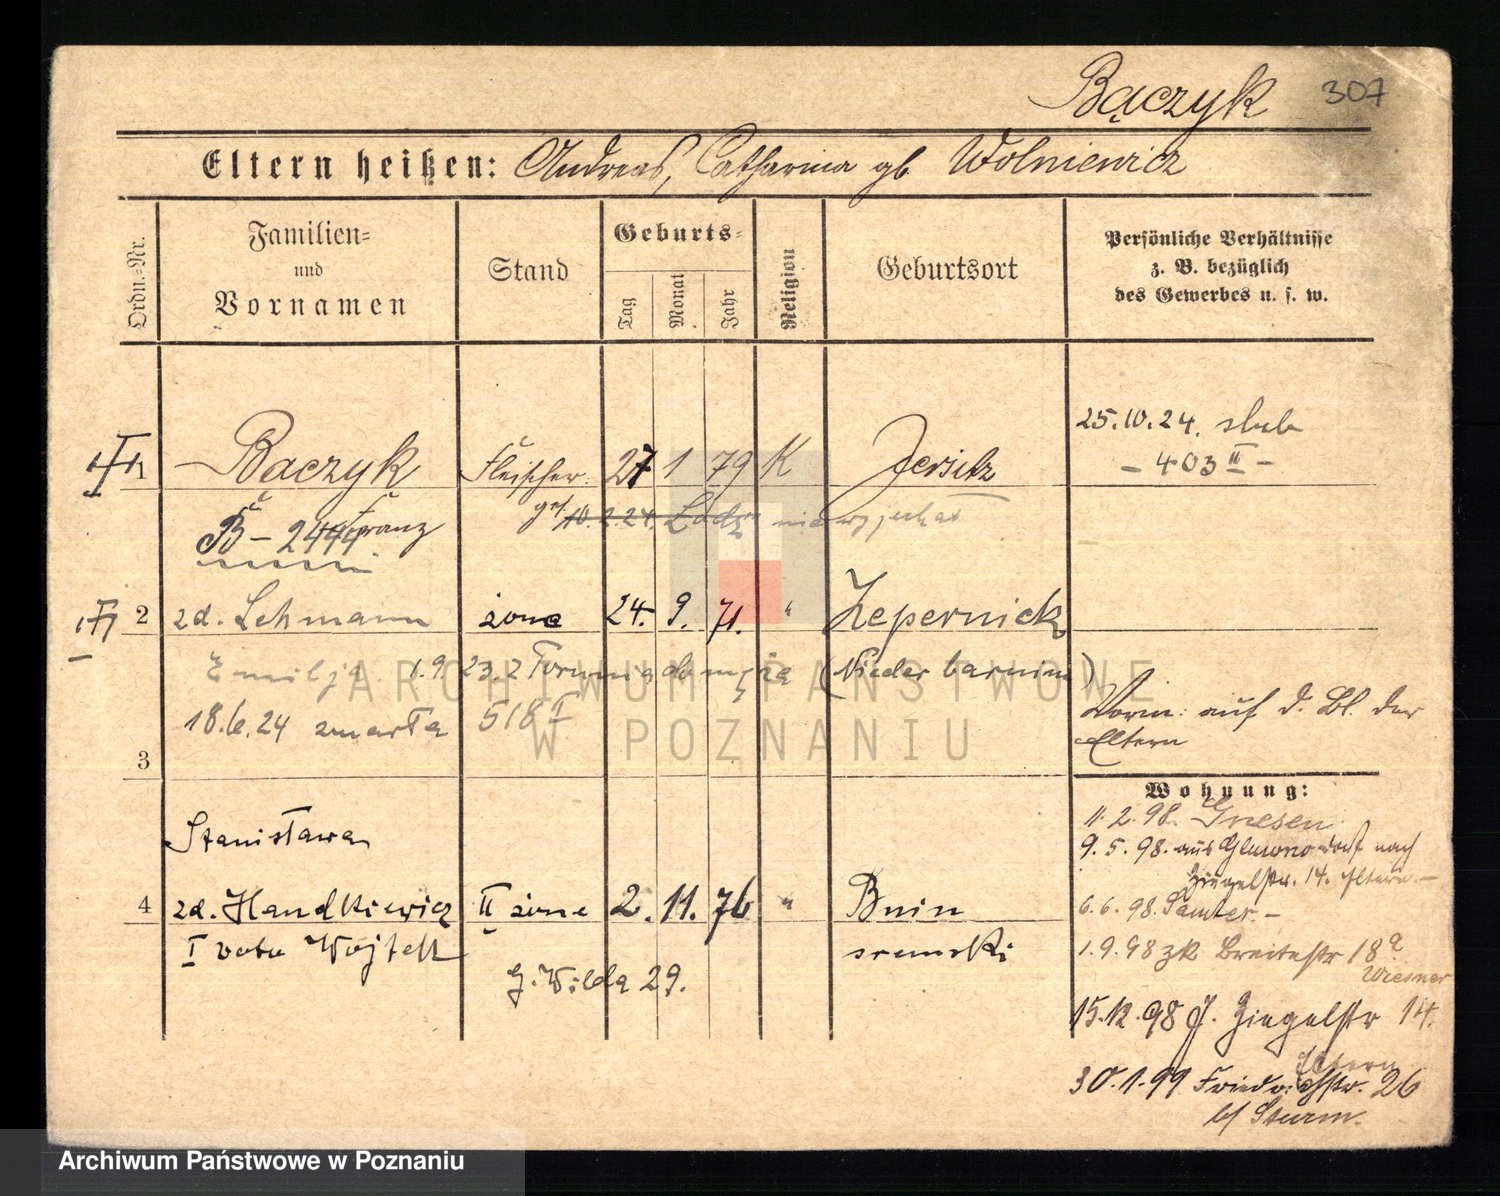 Bączyk 307
Eltern heißen: Andreas, Catharina gb Wolniewicz
Ordn.-Nr.
Familien- und Vornamen
Stand
Geburts-
Tag
Monat
Jahr
Religion
Geburtsort
Persönliche Verhältnisse
z. B. bezüglich
des Gewerbes u. s. w.
25.10.24.
- 403 II -
1 Baczyk Fleischer 27 1 79 K Jersitz
Franz
B - 2444
10.2.24. Łódz nie wyjechał
2 zd. Lehmann żona 24. 9. 71. " Zepernick
Emilja 1.9 23.2 (Niederbarnim)
18.6.24 zmarła 518 I
Vorm: auf d. Bl. der
Eltern
3
Wohnung:
11.2.98. Gnesen
9.5.98. aus Glowno nach
Ziegelstr. 14. Eltern.-
6.6.98. Samter.-
1.9.98 zk Breitestr 18a
Wiesner
15.12.98 J. Ziegelstr 14.
Eltern
30.1.99 Friedrichstr. 26
b/ Sturm.
Stanisława
4 zd. Handkiewicz II żona 2. 11. 76 " Bnin
I voto Wojtek śremski
G. Wilda 29.
ARCHIWUM PAŃSTWOWE
W POZNANIU
Archiwum Państwowe w Poznaniu